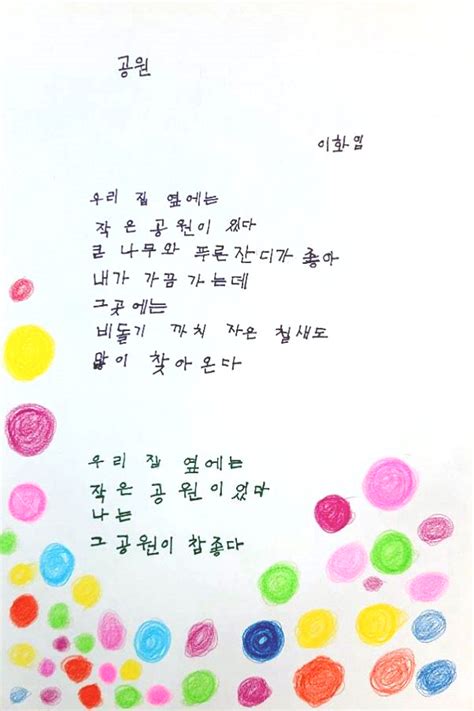 공원
이화엽
우리 집 옆에는
작은 공원이 있다
큰 나무와 푸른잔디가 좋아
내가 가끔 가는데
그곳에는
비둘기 까치 작은 철새도
많이 찾아온다
우리 집 옆에는
작은 공원이있다
나는
그공원이 참좋다